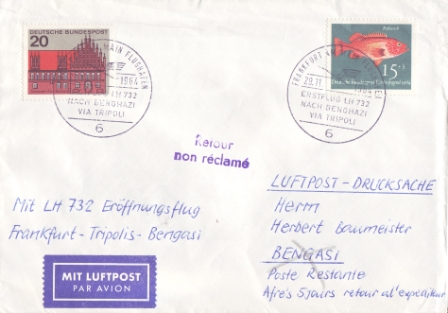 DEUTSCHE BUNDESPOST
20
MAIN FLUGHAFEN
1964
LH 732
NACH BENGHAZI
VIA TRIPOLI
6
FRANKFURT
15
29.11.1964
ERSTFLUG LH 732
NACH BENGHAZI
VIA TRIPOLI
6
Retour
non réclamé
LUFTPOST - DRUCKSACHE
Herrn
Herbert Baumeister
BENGASI
Poste Restante
Afre's 5 jairs retour al'expediteur
Mit LH 732 Eröffnungsflug
Frankfurt-Tripolis-Bengasi
MIT LUFTPOST
PAR AVION